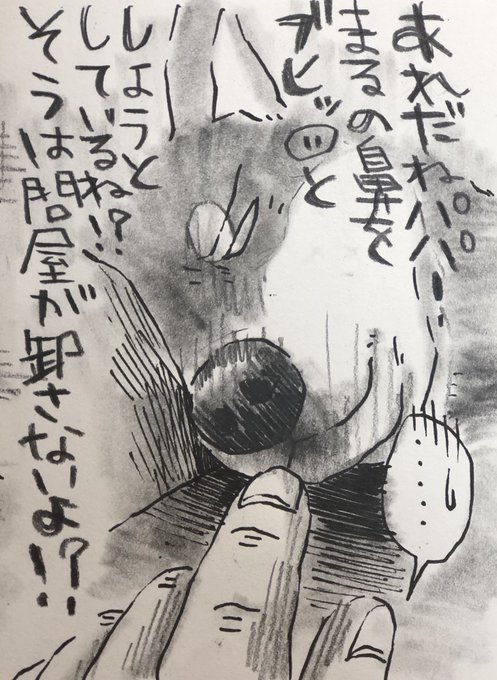 あれだねパパ!
まるの鼻を
ブヒッと
しようと
しているね!?
そうは問屋が卸さないよ!?
……